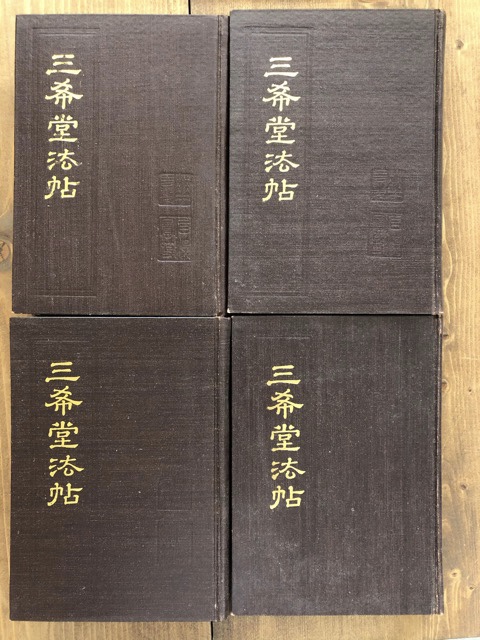 三希堂法帖
三希堂法帖
三希堂法帖
三希堂法帖